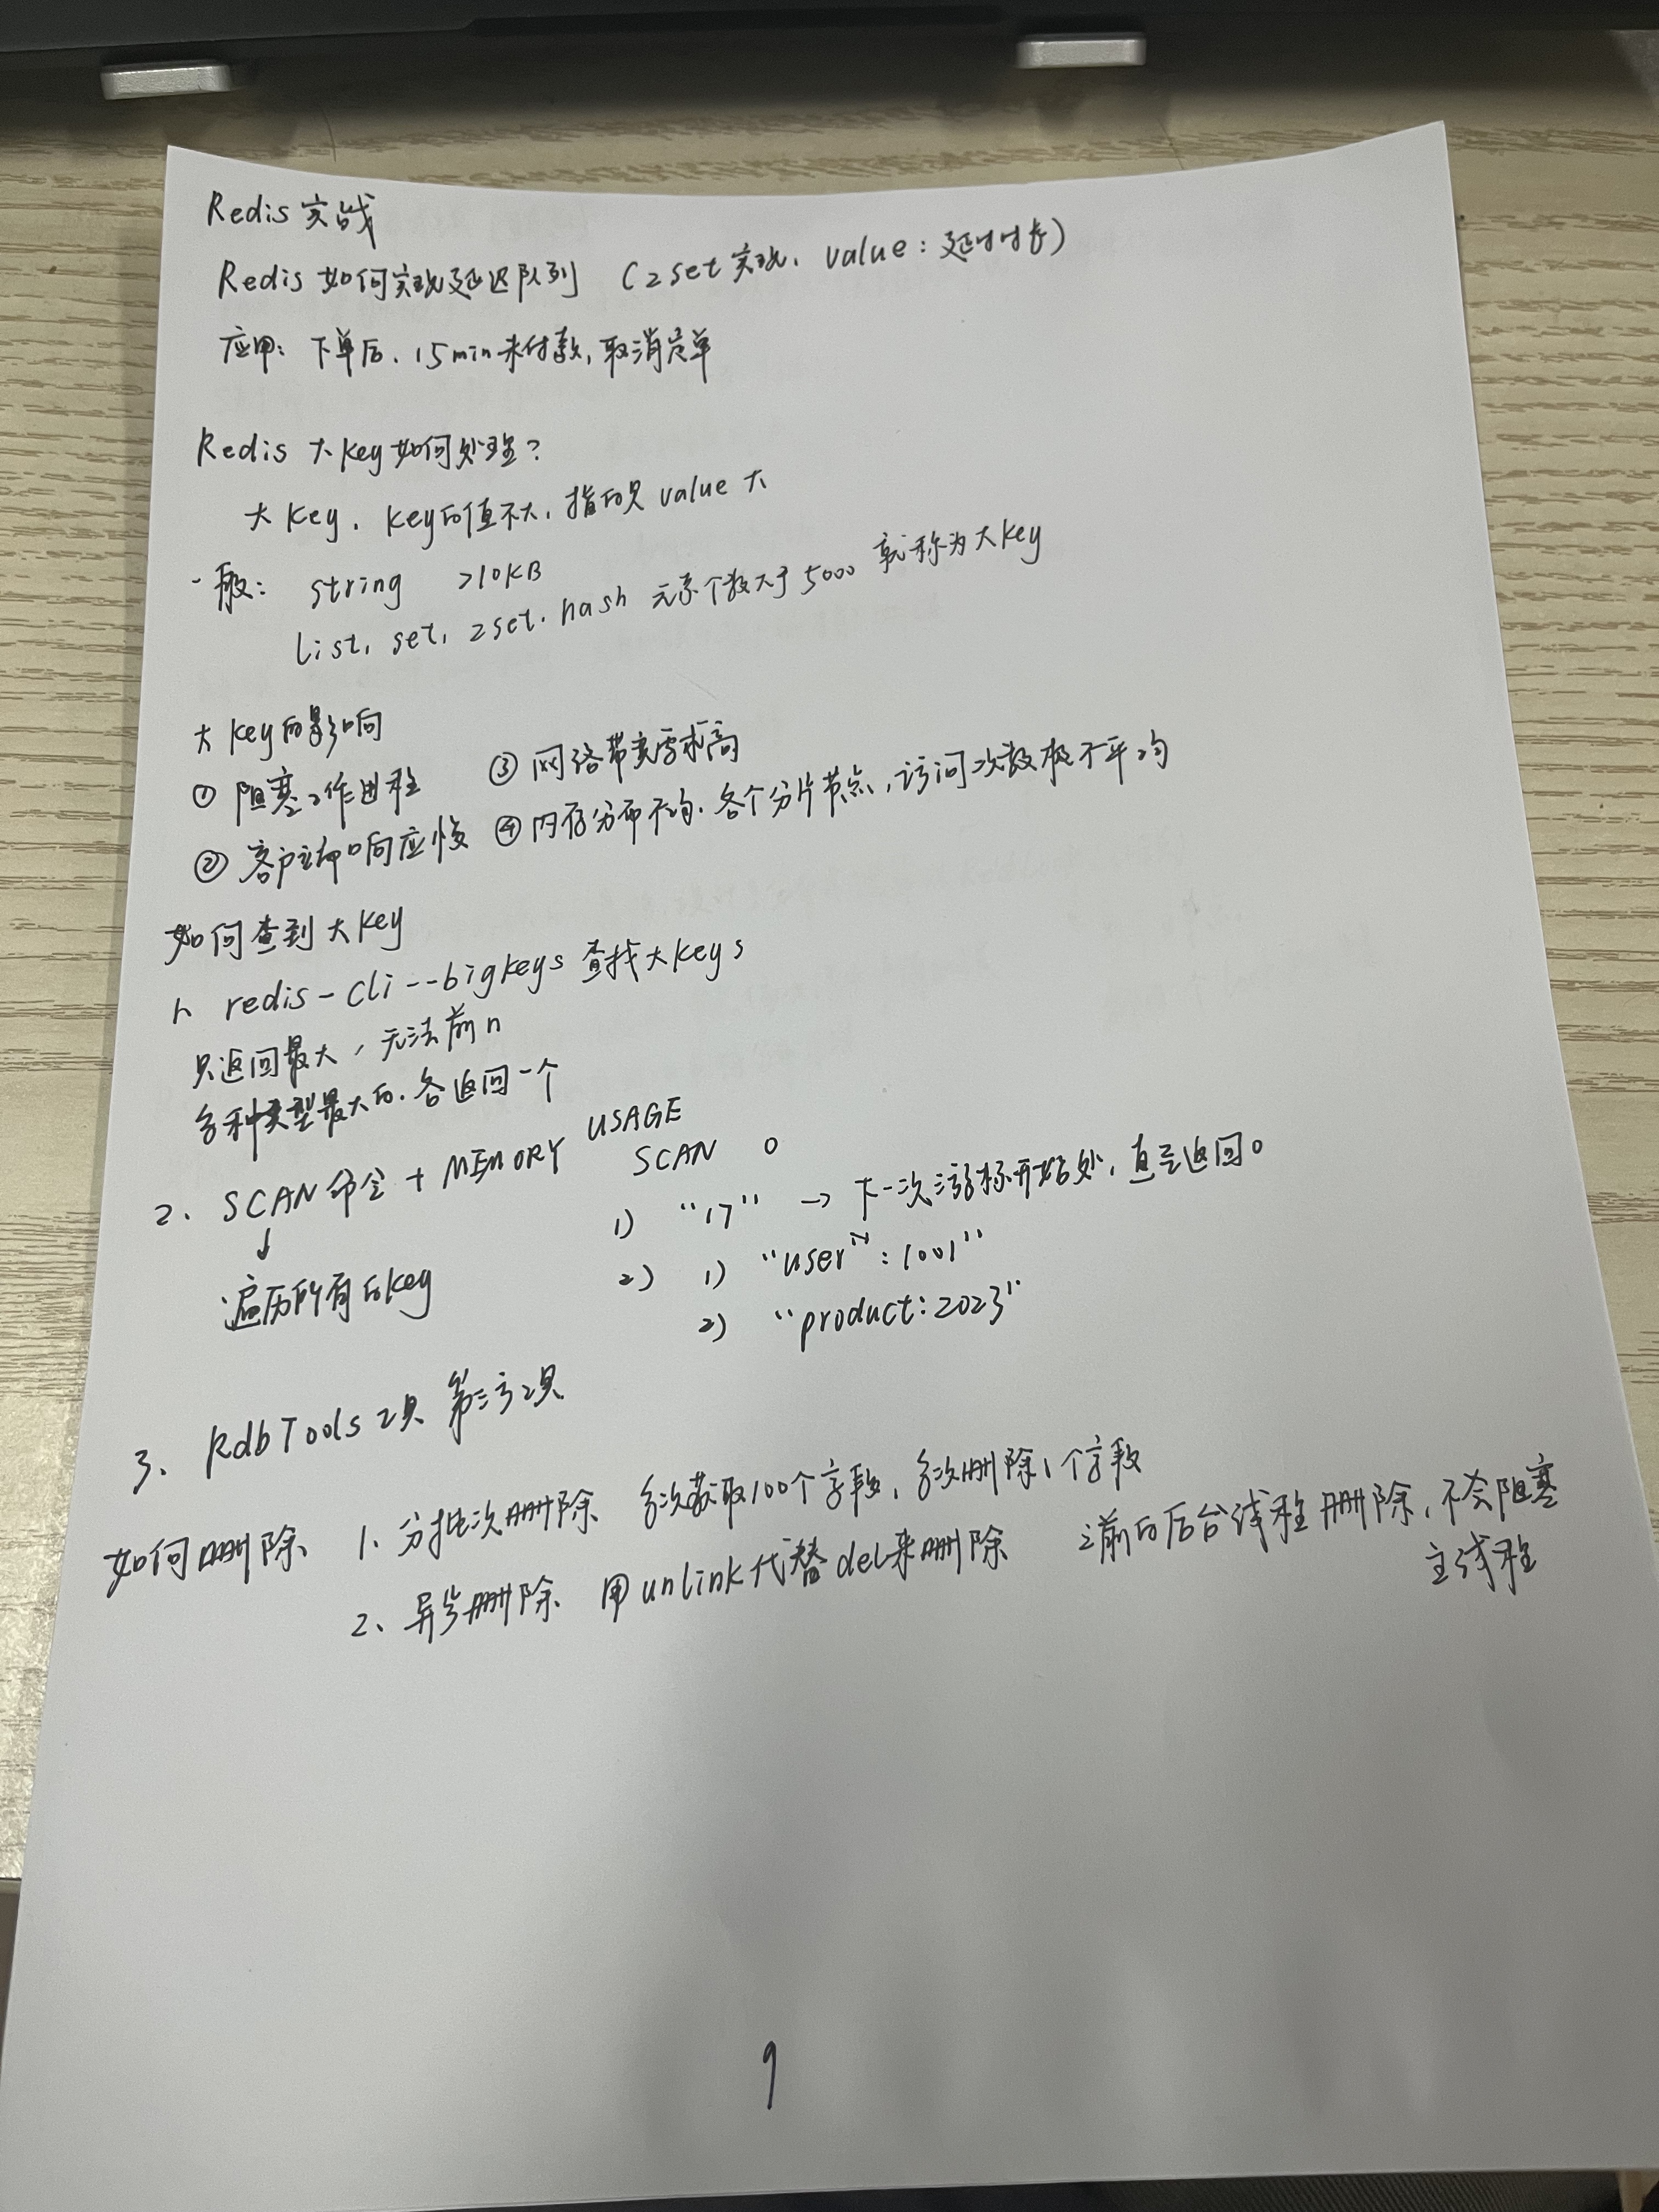 Redis 实战
Redis 如何实现延迟队列 (zset 实现, value: 延时时长)
应用: 下单后, 15min 未付款, 取消订单
Redis 大key如何处理?
大key, key的值不大, 指的是 value 大
一般: string >10KB
list, set, zset, hash 元素个数大于 5000 就称为大key
大key的影响
① 阻塞工作进程 ③ 网络带宽需求高
② 客户端响应慢 ④ 内存分布不均, 各个分片节点, 访问次数极不平均
如何查到大key
1. redis-cli --bigkeys 查找大keys
只返回最大, 无法前n
各种类型最大的, 各返回一个
2. SCAN 命令 + MEMORY USAGE
↓
遍历所有的key
SCAN 0
1) "17" → 下一次游标开始处, 直至返回0
2) 1) "user": 1001"
2) "product: 2023"
3. RdbTools 工具 第三方工具
如何删除 1. 分批次删除 每次获取100个字段, 每次删除1个字段
2. 异步删除 用 unlink 代替 del 来删除 之前的后台线程删除, 不会阻塞
主线程
9